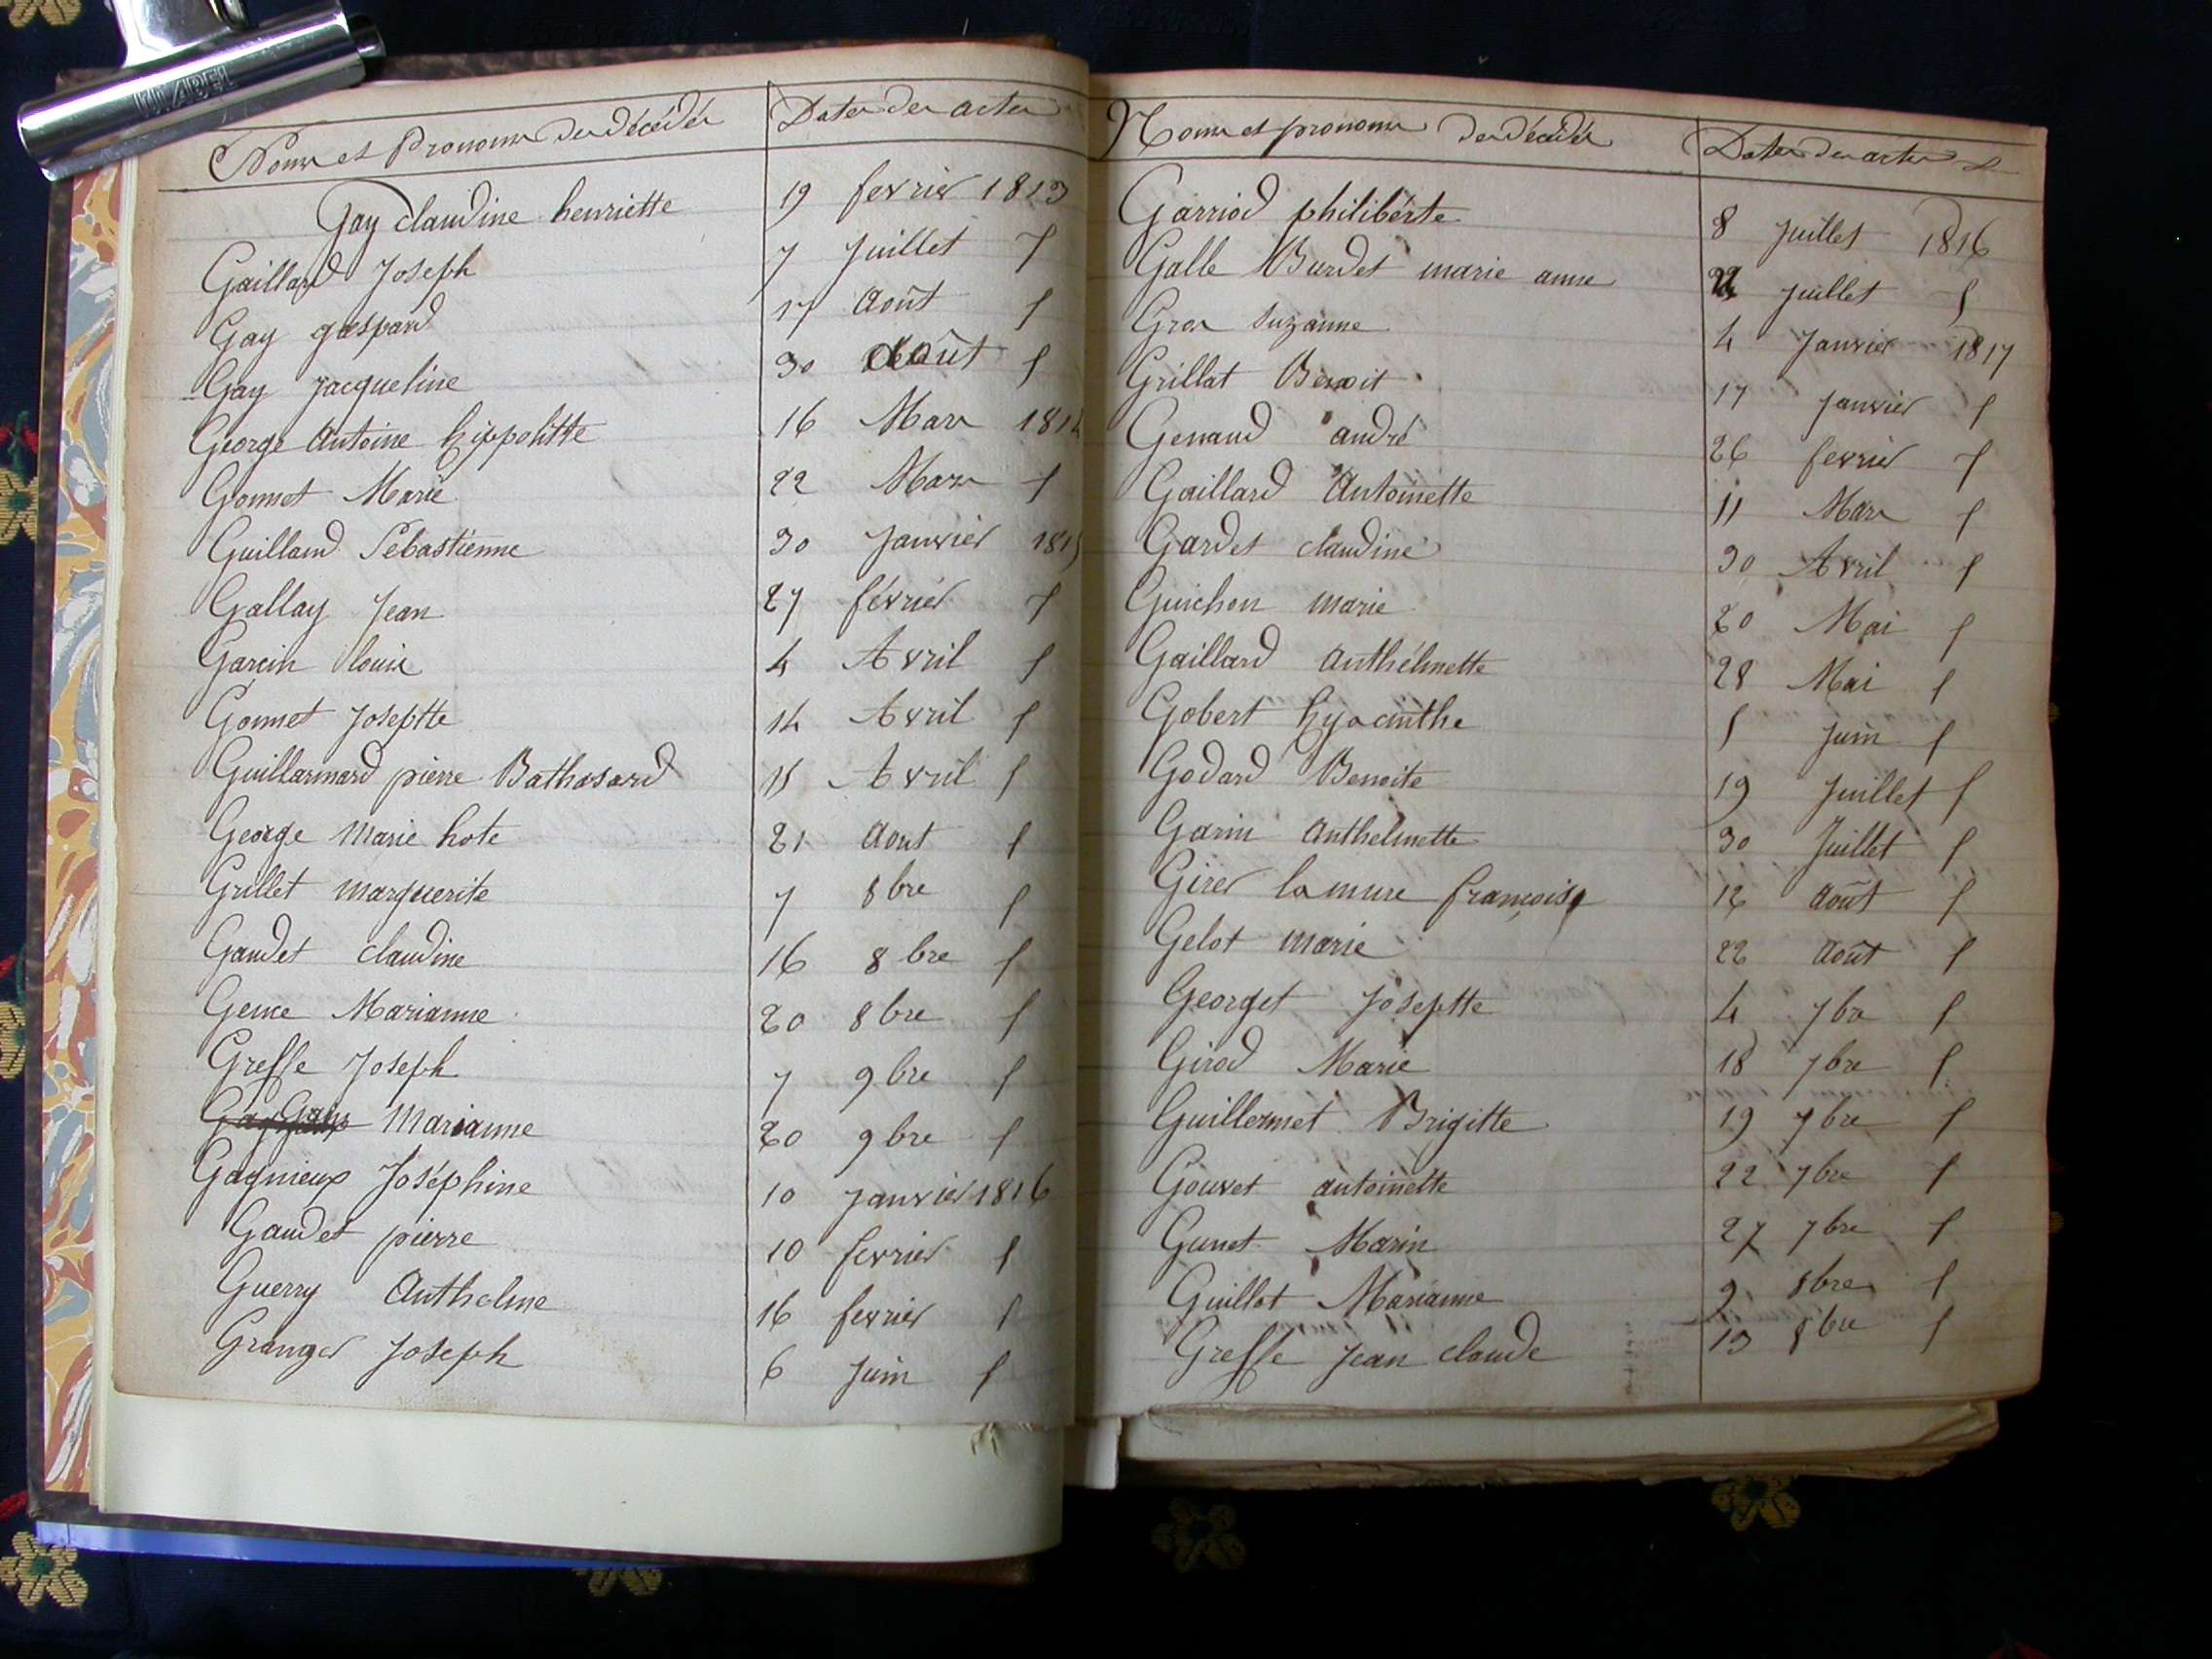 Noms et Pronoms des décédés Dates des actes
Gay claudine henriette 19 fevrier 1813
Gaillard Joseph 7 Juillet
Gay gaspard 17 Août
Gay Jacqueline 30 Août
George Antoine hippolitte 16 Mars
Gonnet Marie 22 Mars
Guilland Sébastienne 30 Janvier 1815
Gallay Jean 27 février
Garcin louis 4 Avril
Gonnet Josephte 14 Avril
Guillarmard pierre Bathasard 15 Avril
George Marie hote 21 Aout
Grillet marguerite 7 8bre
Gaudet claudine 16 8bre
Gence Marianne 20 8bre
Greffe Joseph 7 9bre
Marianne 20 9bre
Gagnieux Joséphine 10 Janvier 1816
Gaudet pierre 10 fevrier
Guerry Anthelme 16 fevrier
Granger Joseph 6 Juin
Noms et pronoms des décédés Dates des actes
Garriod philiberte 8 Juillet 1816
Galle Burdet marie anne Juillet
Gros Suzanne 4 Janvier 1817
Grillat Benoit 17 Janvier
Genaud andré 26 fevrier
Gaillard Antoinette 11 Mars
Gardet claudine 30 Avril
Guichon marie 20 Mai
Gaillard Anthélmette 28 Mai
Gobert hyacinthe Juin
Godard Benoite 19 Juillet
Garin Anthelmette 30 Juillet
Girer lamure françoise 12 Août
Gelot marie 22 Août
Georget Josephte 4 7bre
Girod Marie 18 7bre
Guillermet Brigitte 19 7bre
Gouvet antoinette 22 7bre
Gunet Marin 27 7bre
Guillot Marianne 9 8bre
Greffe Jean claude 13 8bre